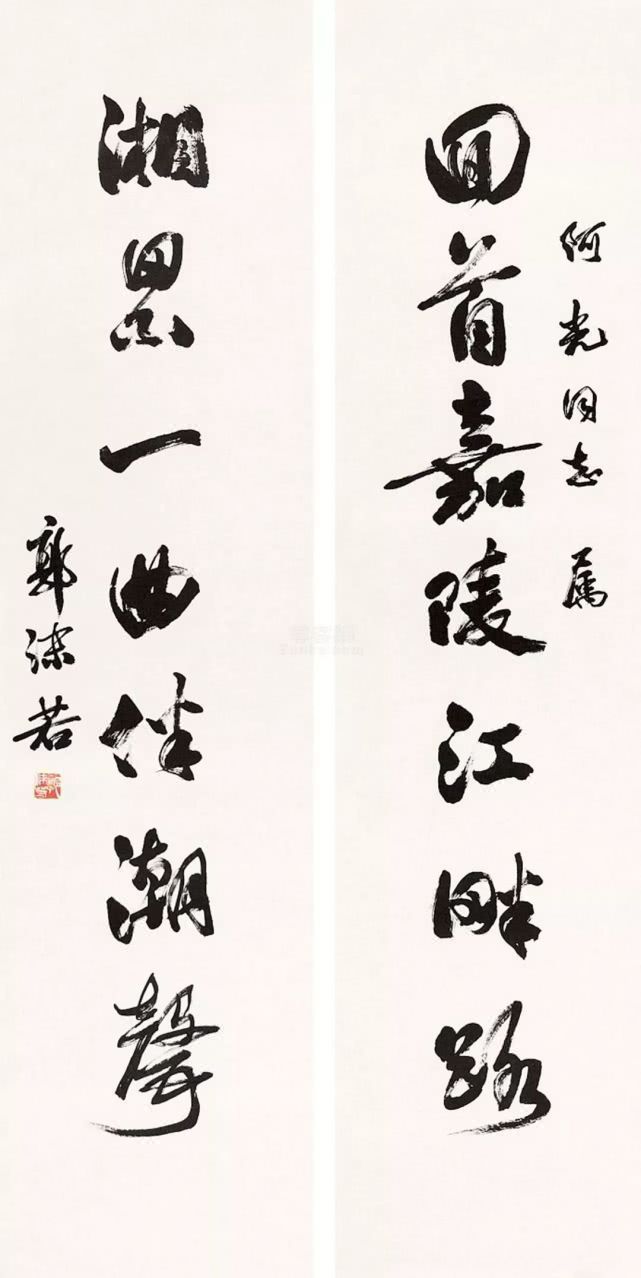 阿光同志 属
回首嘉陵江畔路
湘累一曲伴潮聲
郭沫若